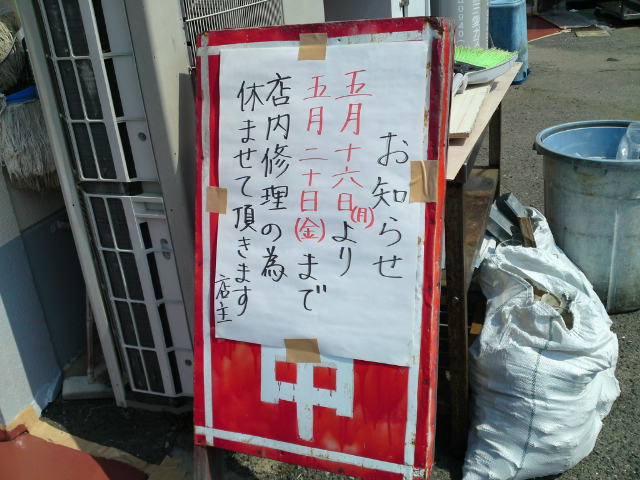 お知らせ
五月十六日(月)より
五月二十日(金)まで
店内修理の為
休ませて頂きます
店主
中